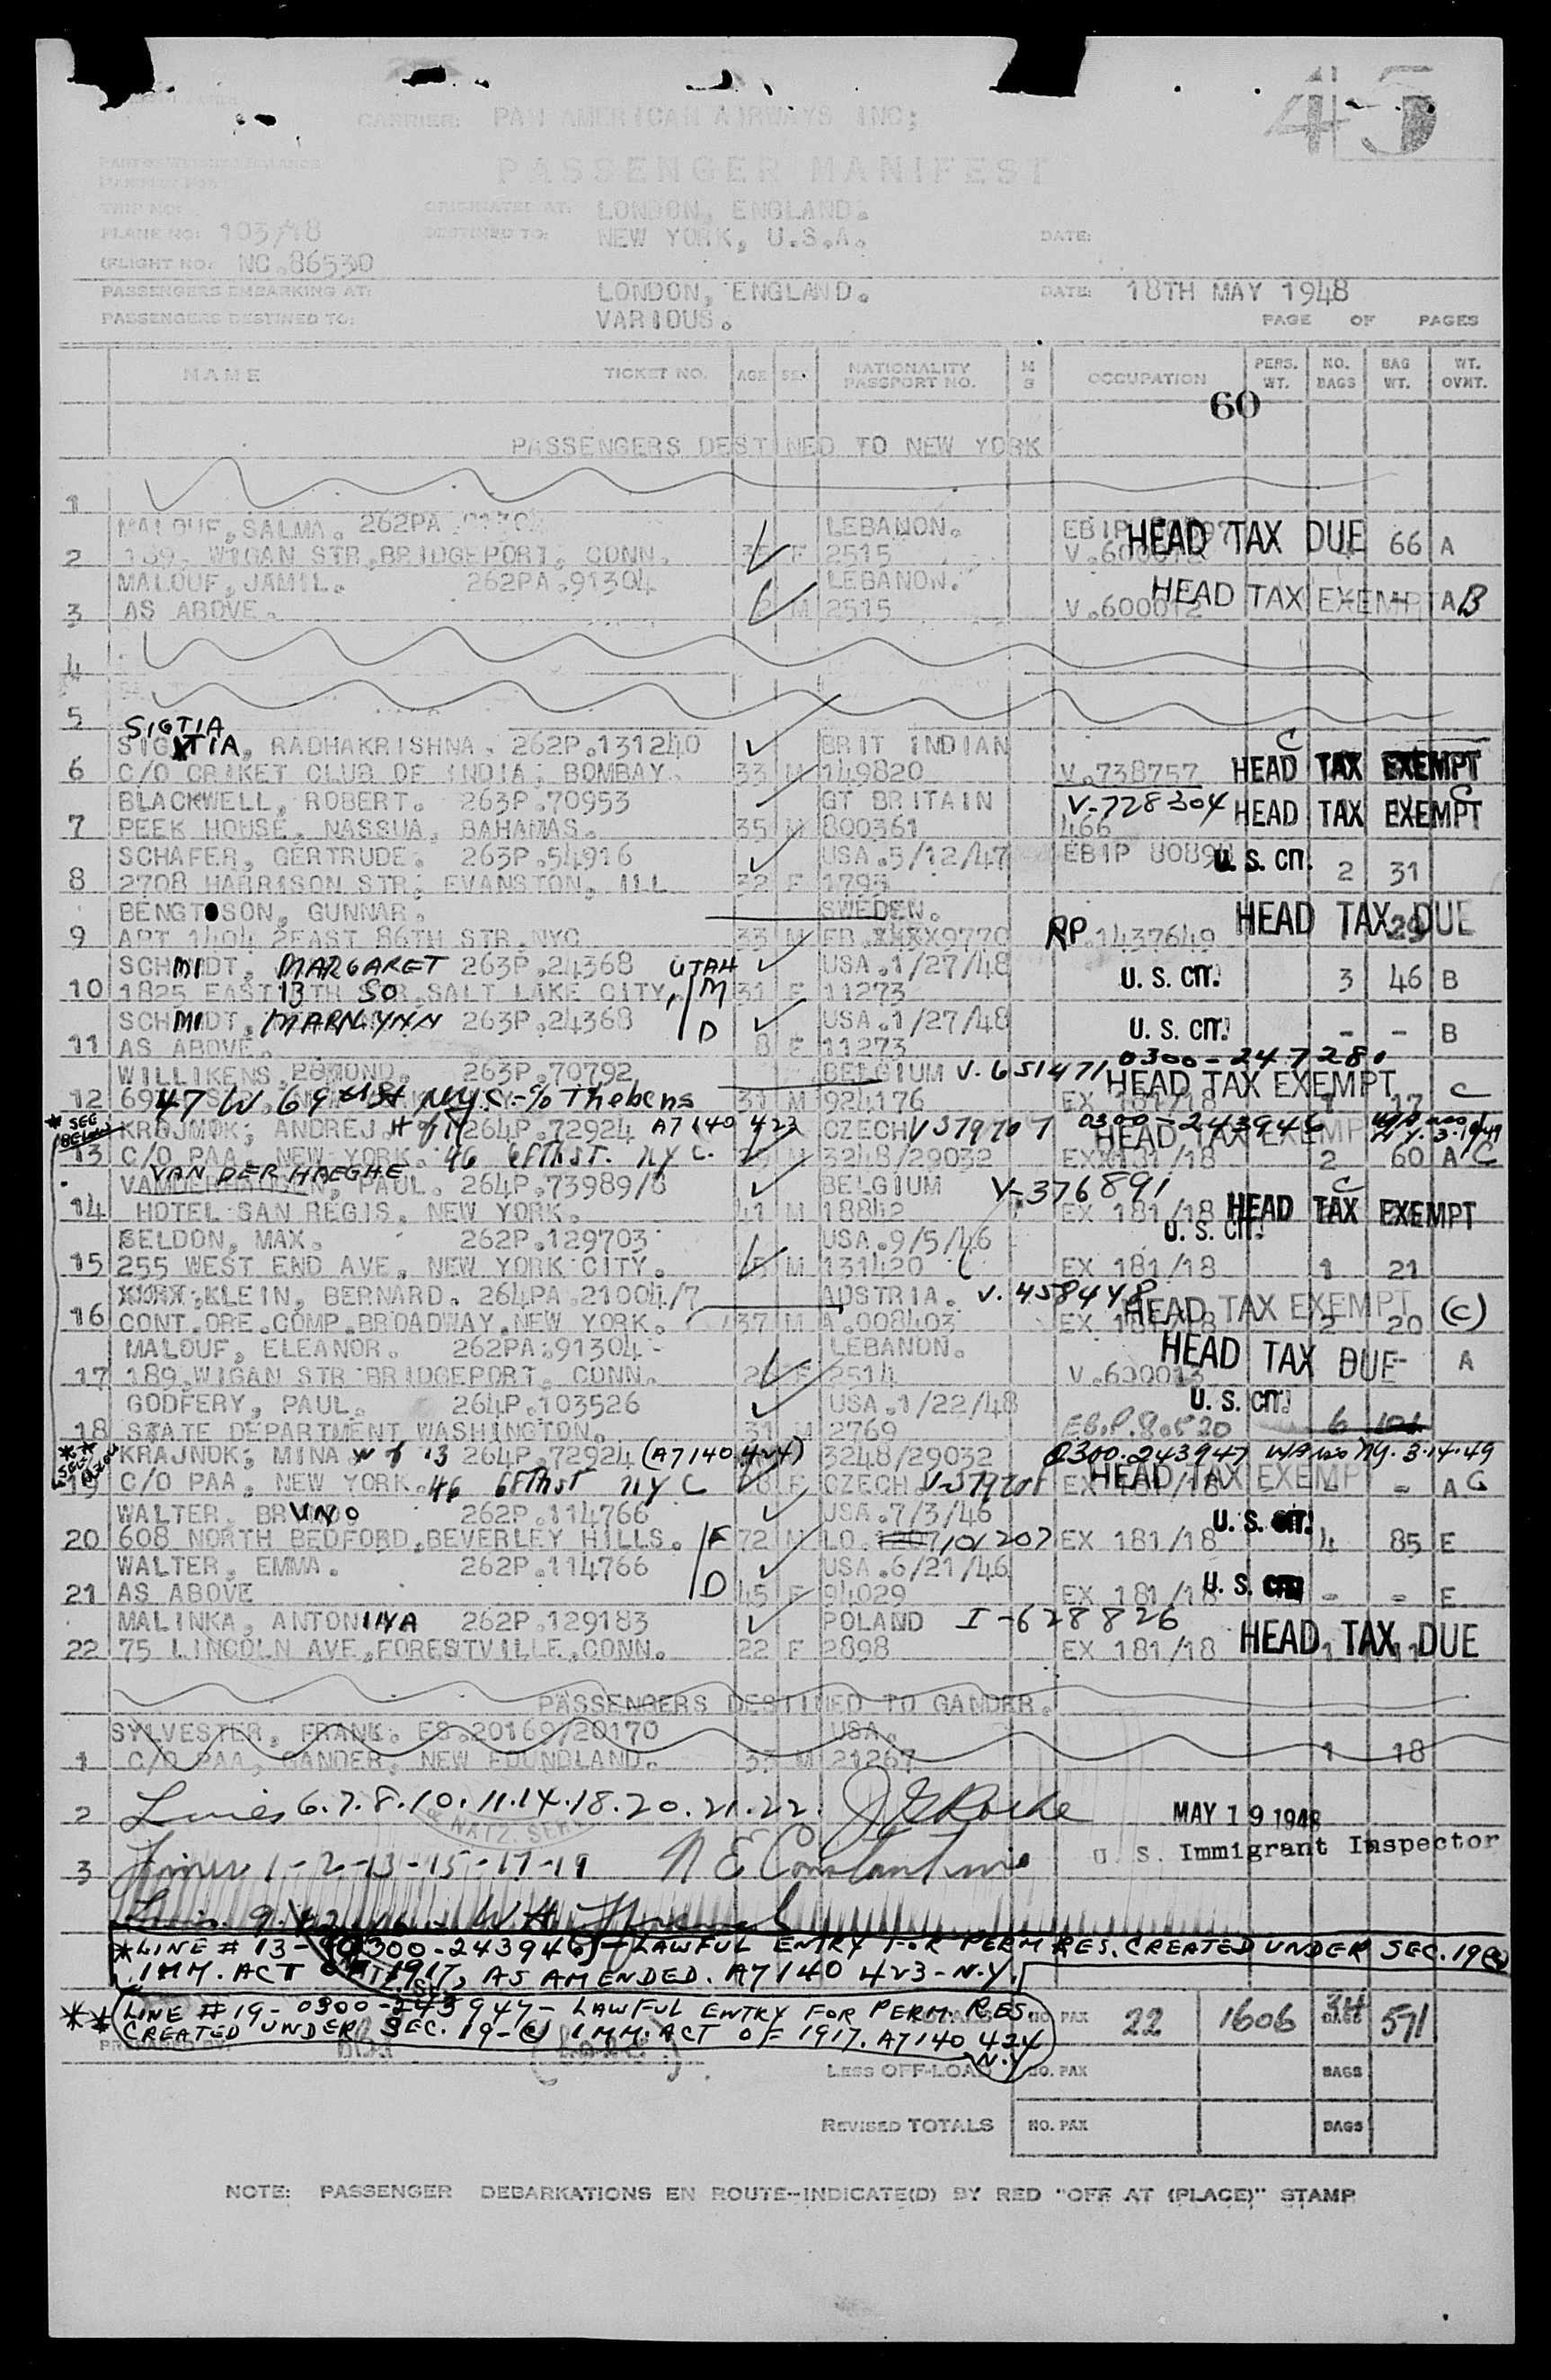 45
CARRIER: PAN AMERICAN AIRWAYS INC;
PASSENGER MANIFEST
TRIP NO:
ORIGINATED AT: LONDON, ENGLAND.
PLANE NO: 103/18
DESTINED TO: NEW YORK, U.S.A. DATE:
(FLIGHT NO: NC.86530
PASSENGERS EMBARKING AT: LONDON, ENGLAND. DATE: 18TH MAY 1948
PASSENGERS DESTINED TO: VARIOUS.
PAGE OF PAGES
NAME TICKET NO. AGE SEX NATIONALITY PASSPORT NO. M S OCCUPATION PERS. WT. NO. BAGS BAG WT. WT. OVWT.
60
PASSENGERS DESTINED TO NEW YORK
1
MALOUF, SALMA. 262PA LEBANON. HEAD TAX DUE 66 A
2 189, WIGAN STR, BRIDGEPORT, CONN. F 2515 V.600012
MALOUF, JAMIL. 262PA.91304 LEBANON. HEAD TAX EXEMPT A B
3 AS ABOVE. M 2515 V.600012
4
5
SIGTIA
SIGTIA, RADHAKRISHNA. 262P.131240 BRIT INDIAN C
6 C/O CRIKET CLUB OF INDIA, BOMBAY. 33 M 149820 V.738757 HEAD TAX EXEMPT
BLACKWELL, ROBERT. 263P.70953 GT BRITAIN V-728304 HEAD TAX EXEMPT C
7 PEEK HOUSE, NASSUA, BAHAMAS. 35 M 800361 466
SCHAFER, GERTRUDE. 263P.54916 USA.5/12/47 EBIP U. S. CIT.
8 2708 HARRISON STR; EVANSTON, ILL 32 F 1795 2 31
BENGTSON, GUNNAR. SWEDEN. HEAD TAX DUE
9 APT 1404 2EAST 86TH STR.NYC 33 M RP.1437649 29
SCHMIDT, MARGARET 263P.24368 UTAH USA.1/27/48 U. S. CIT.
10 1825 EAST 13TH SO SALT LAKE CITY, M 31 F 11273 3 46 B
SCHMIDT, MARNLYNN 263P.24368 USA.1/27/48 U. S. CIT.
11 AS ABOVE. D 8 F 11273 - - B
WILLIKENS, 263P.70792 BELGIUM V.651471 0300-247280 HEAD TAX EXEMPT
12 47 W 69 St NYC - % Thebens 31 M 924176 EX 181/18 1 17 C
* SEE BELOW
KRAJNOK; ANDREJ. H of 19 264P.72924 A7140 423 CZECH V579707 0300-243946 HEAD TAX EXEMPT
13 C/O PAA, NEW YORK. 46 68th St. NYC. M 3248/29032 EX 181/18 2 60 A C
VAN DER HAEGHE
PAUL. 264P.73989/8 BELGIUM V-376891 C
14 HOTEL SAN REGIS, NEW YORK. 41 M 18842 EX 181/18 HEAD TAX EXEMPT
SELDON, MAX. 262P.129703 USA.9/5/46 U. S. CIT.
15 255 WEST END AVE, NEW YORK CITY. M 131420 EX 181/18 1 21
KLEIN, BERNARD. 264PA.21004/7 AUSTRIA. V.458448 HEAD TAX EXEMPT
16 CONT.ORE.COMP.BROADWAY.NEW YORK. 37 M A.008403 EX 181/18 2 20 (C)
MALOUF, ELEANOR. 262PA.91304 - LEBANON. HEAD TAX DUE - A
17 189, WIGAN STR BRIDGEPORT, CONN. F 2514 V.600013
GODFERY, PAUL. 264P.103526 USA.1/22/48 U. S. CIT.
18 STATE DEPARTMENT WASHINGTON. 31 M 2769 6
** SEE BELOW
KRAJNOK; MINA W of 13 264P.72924 (A7140 424) 3248/29032 0300-243947 NY. 3-14-49
19 C/O PAA, NEW YORK. 46 68th St NYC F CZECH EX 181/18 HEAD TAX EXEMPT - A C
WALTER, BRUNO 262P.114766 USA.7/3/46 U. S. CIT.
20 608 NORTH BEDFORD, BEVERLEY HILLS. F 72 M LO. 101207 EX 181/18 4 85 E
WALTER, EMMA. 262P.114766 USA.6/21/46 U. S. CIT.
21 AS ABOVE D 45 F 94029 EX 181/18 - - E
MALINKA, ANTONINA 262P.129183 POLAND I-628826
22 75 LINCOLN AVE, FORESTVILLE, CONN. 22 F 2898 EX 181/18 HEAD TAX DUE
PASSENGERS DESTINED TO GANDER.
SYLVESTER, FRANK. ES.20169/20170 USA.
1 C/O PAA, GANDER, NEW FOUNDLAND. 33 M 21267 1 18
2 Lines 6.7.8.10.11.14.18.20.21.22. MAY 19 1948
3 Lines 1-2-13-15-17-19 N E Constantine U. S. Immigrant Inspector
* LINE # 13-0300-243946 - LAWFUL ENTRY FOR PERM RES. CREATED UNDER SEC. 19(c)
IMM. ACT OF 1917, AS AMENDED. A7140 423-N.Y.
** LINE # 19-0300-243947- LAWFUL ENTRY FOR PERM. RES.
CREATED UNDER SEC. 19-(c) IMM. ACT OF 1917. A7140 424
N.Y
NO. PAX 22 1606 34 BAGS 571
PREPARED BY:
LESS OFF-LOAD NO. PAX BAGS
REVISED TOTALS NO. PAX BAGS
NOTE: PASSENGER DEBARKATIONS EN ROUTE--INDICATE(D) BY RED "OFF AT (PLACE)" STAMP